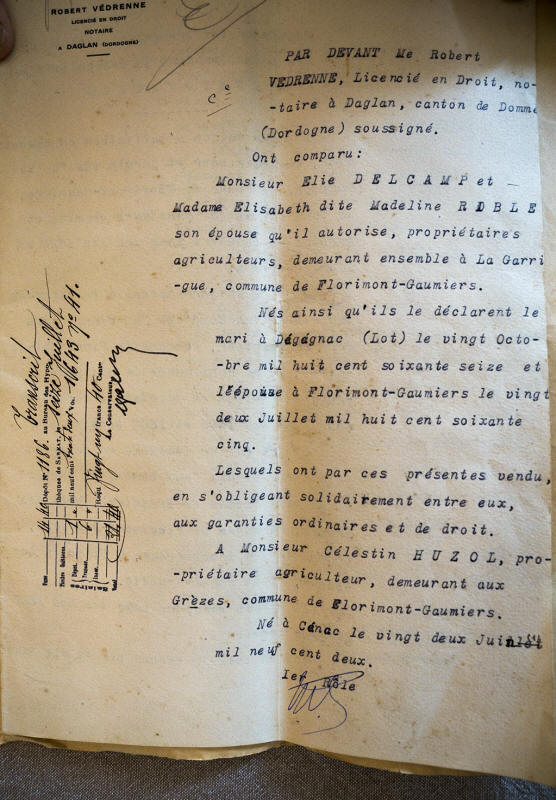 ROBERT VÉDRENNE
LICENCIÉ EN DROIT
NOTAIRE
A DAGLAN (DORDOGNE)
PAR DEVANT Me Robert
VEDRENNE, Licencié en Droit, no-
-taire à Daglan, canton de Domme
(Dordogne) soussigné.
Ont comparu:
Monsieur Elie DELCAMP et
Madame Elisabeth dite Madeline
son épouse qu'il autorise, propriétaires
agriculteurs, demeurant ensemble à La Garri
-gue, commune de Florimont-Gaumiers.
Nés ainsi qu'ils le déclarent le
mari à Dégagnac (Lot) le vingt Octo-
-bre mil huit cent soixante seize et
l'épouse à Florimont-Gaumiers le vingt
deux Juillet mil huit cent soixante
cinq.
Lesquels ont par ces présentes vendu,
en s'obligeant solidairement entre eux,
aux garanties ordinaires et de droit.
A Monsieur Célestin HUZOL, pro-
-priétaire agriculteur, demeurant aux
Grèzes, commune de Florimont-Gaumiers.
Né à Cénac le vingt deux
mil neuf cent deux.
Ier Rôle
Transcrit au Bureau des
Dépôt N° 1186.
mil neuf cent vol. 1643 N° 41.
Le Conservateur,